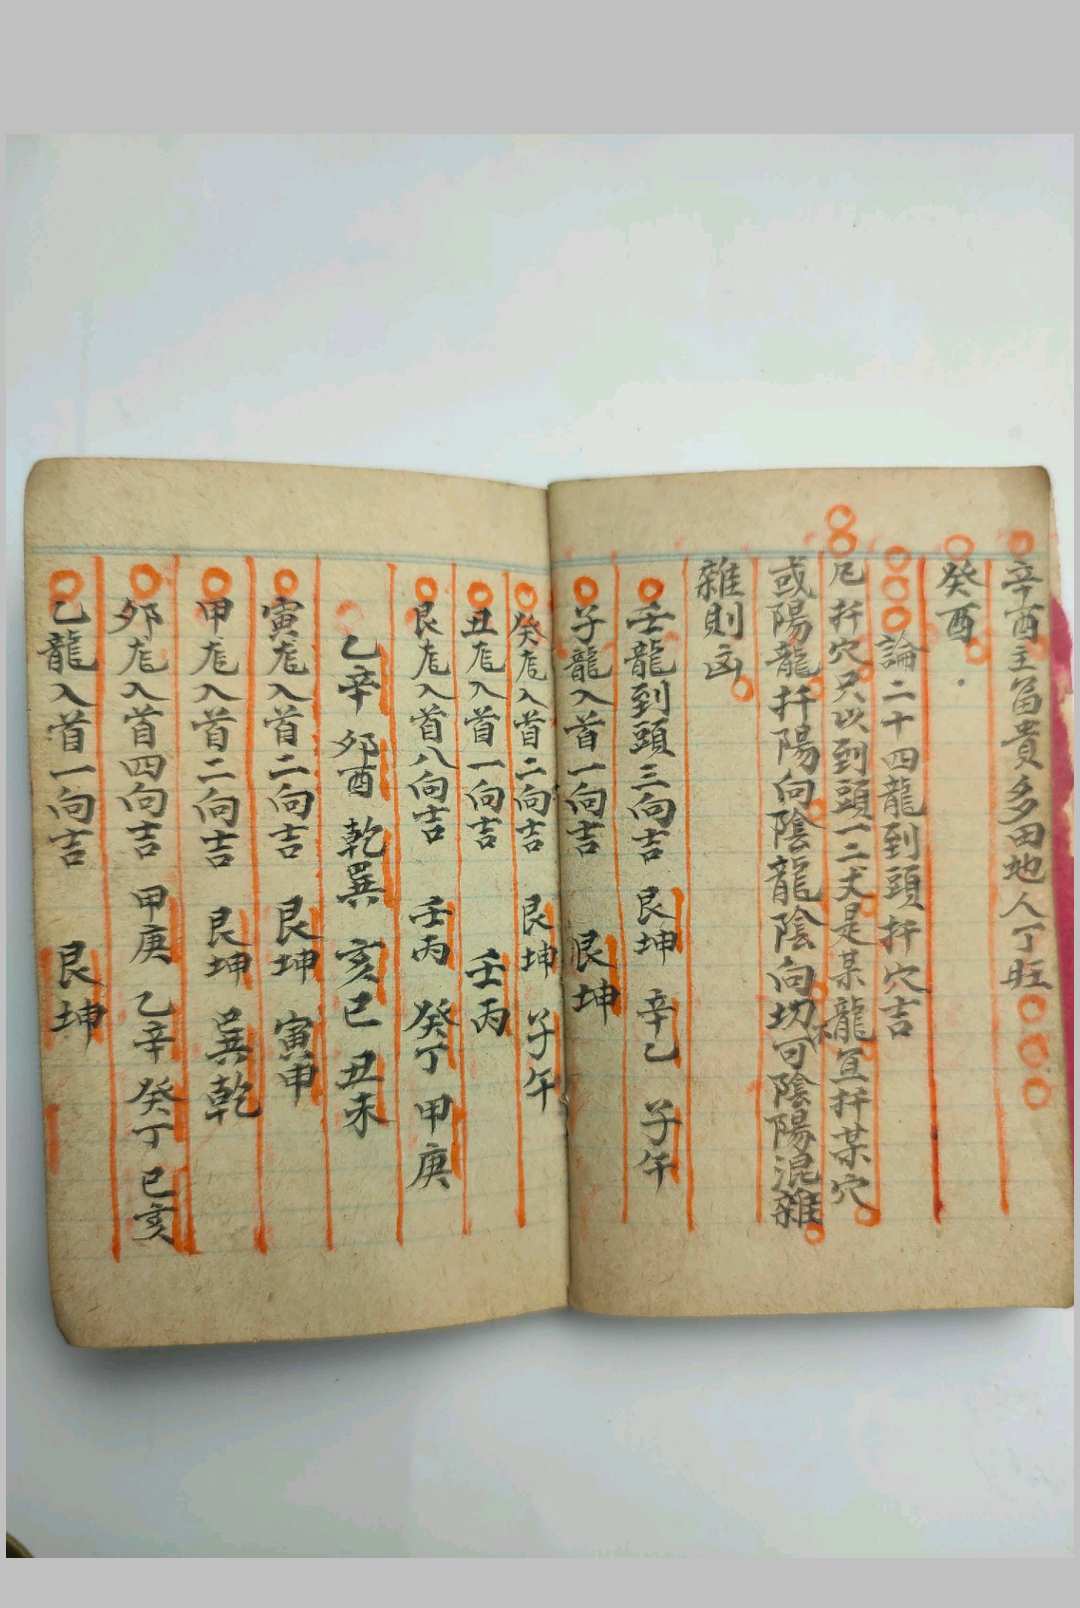 辛酉主富貴多田地人丁旺
癸酉
論二十四龍到頭扦穴吉
凡扦穴只以到頭一二丈是某龍宜扦某穴
或陽龍扦陽向陰龍陰向切不可陰陽混雜
雜則凶
壬龍到頭三向吉 艮坤 辛乙 子午
子龍入首一向吉 艮坤
癸龙入首二向吉 艮坤 子午
丑龙入首一向吉 壬丙
艮龙入首八向吉 壬丙 癸丁 甲庚
乙辛 卯酉 乾巽 亥巳 丑未
寅龙入首二向吉 艮坤 寅申
甲龙入首二向吉 艮坤 巽乾
卯龙入首四向吉 甲庚 乙辛 癸丁 巳亥
乙龍入首一向吉 艮坤